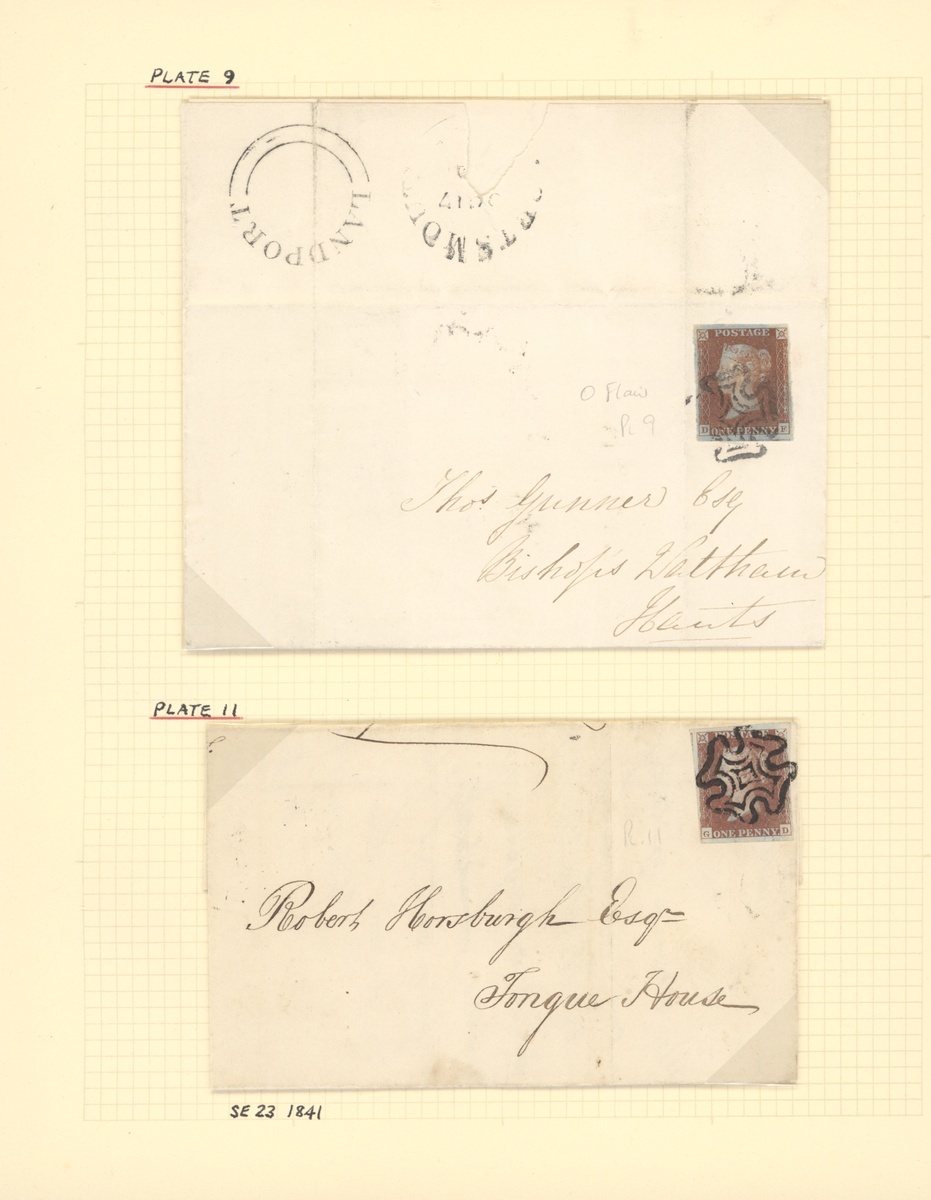 PLATE 9
LANDPORT
POSTAGE
O Flaw
Pl. 9
D ONE PENNY E
Thos. Gunner Esq
Bishops Waltham
Hants
PLATE 11
G ONE PENNY D
Pl. 11
Robert Horsburgh Esqr
Tongue House
SE 23 1841